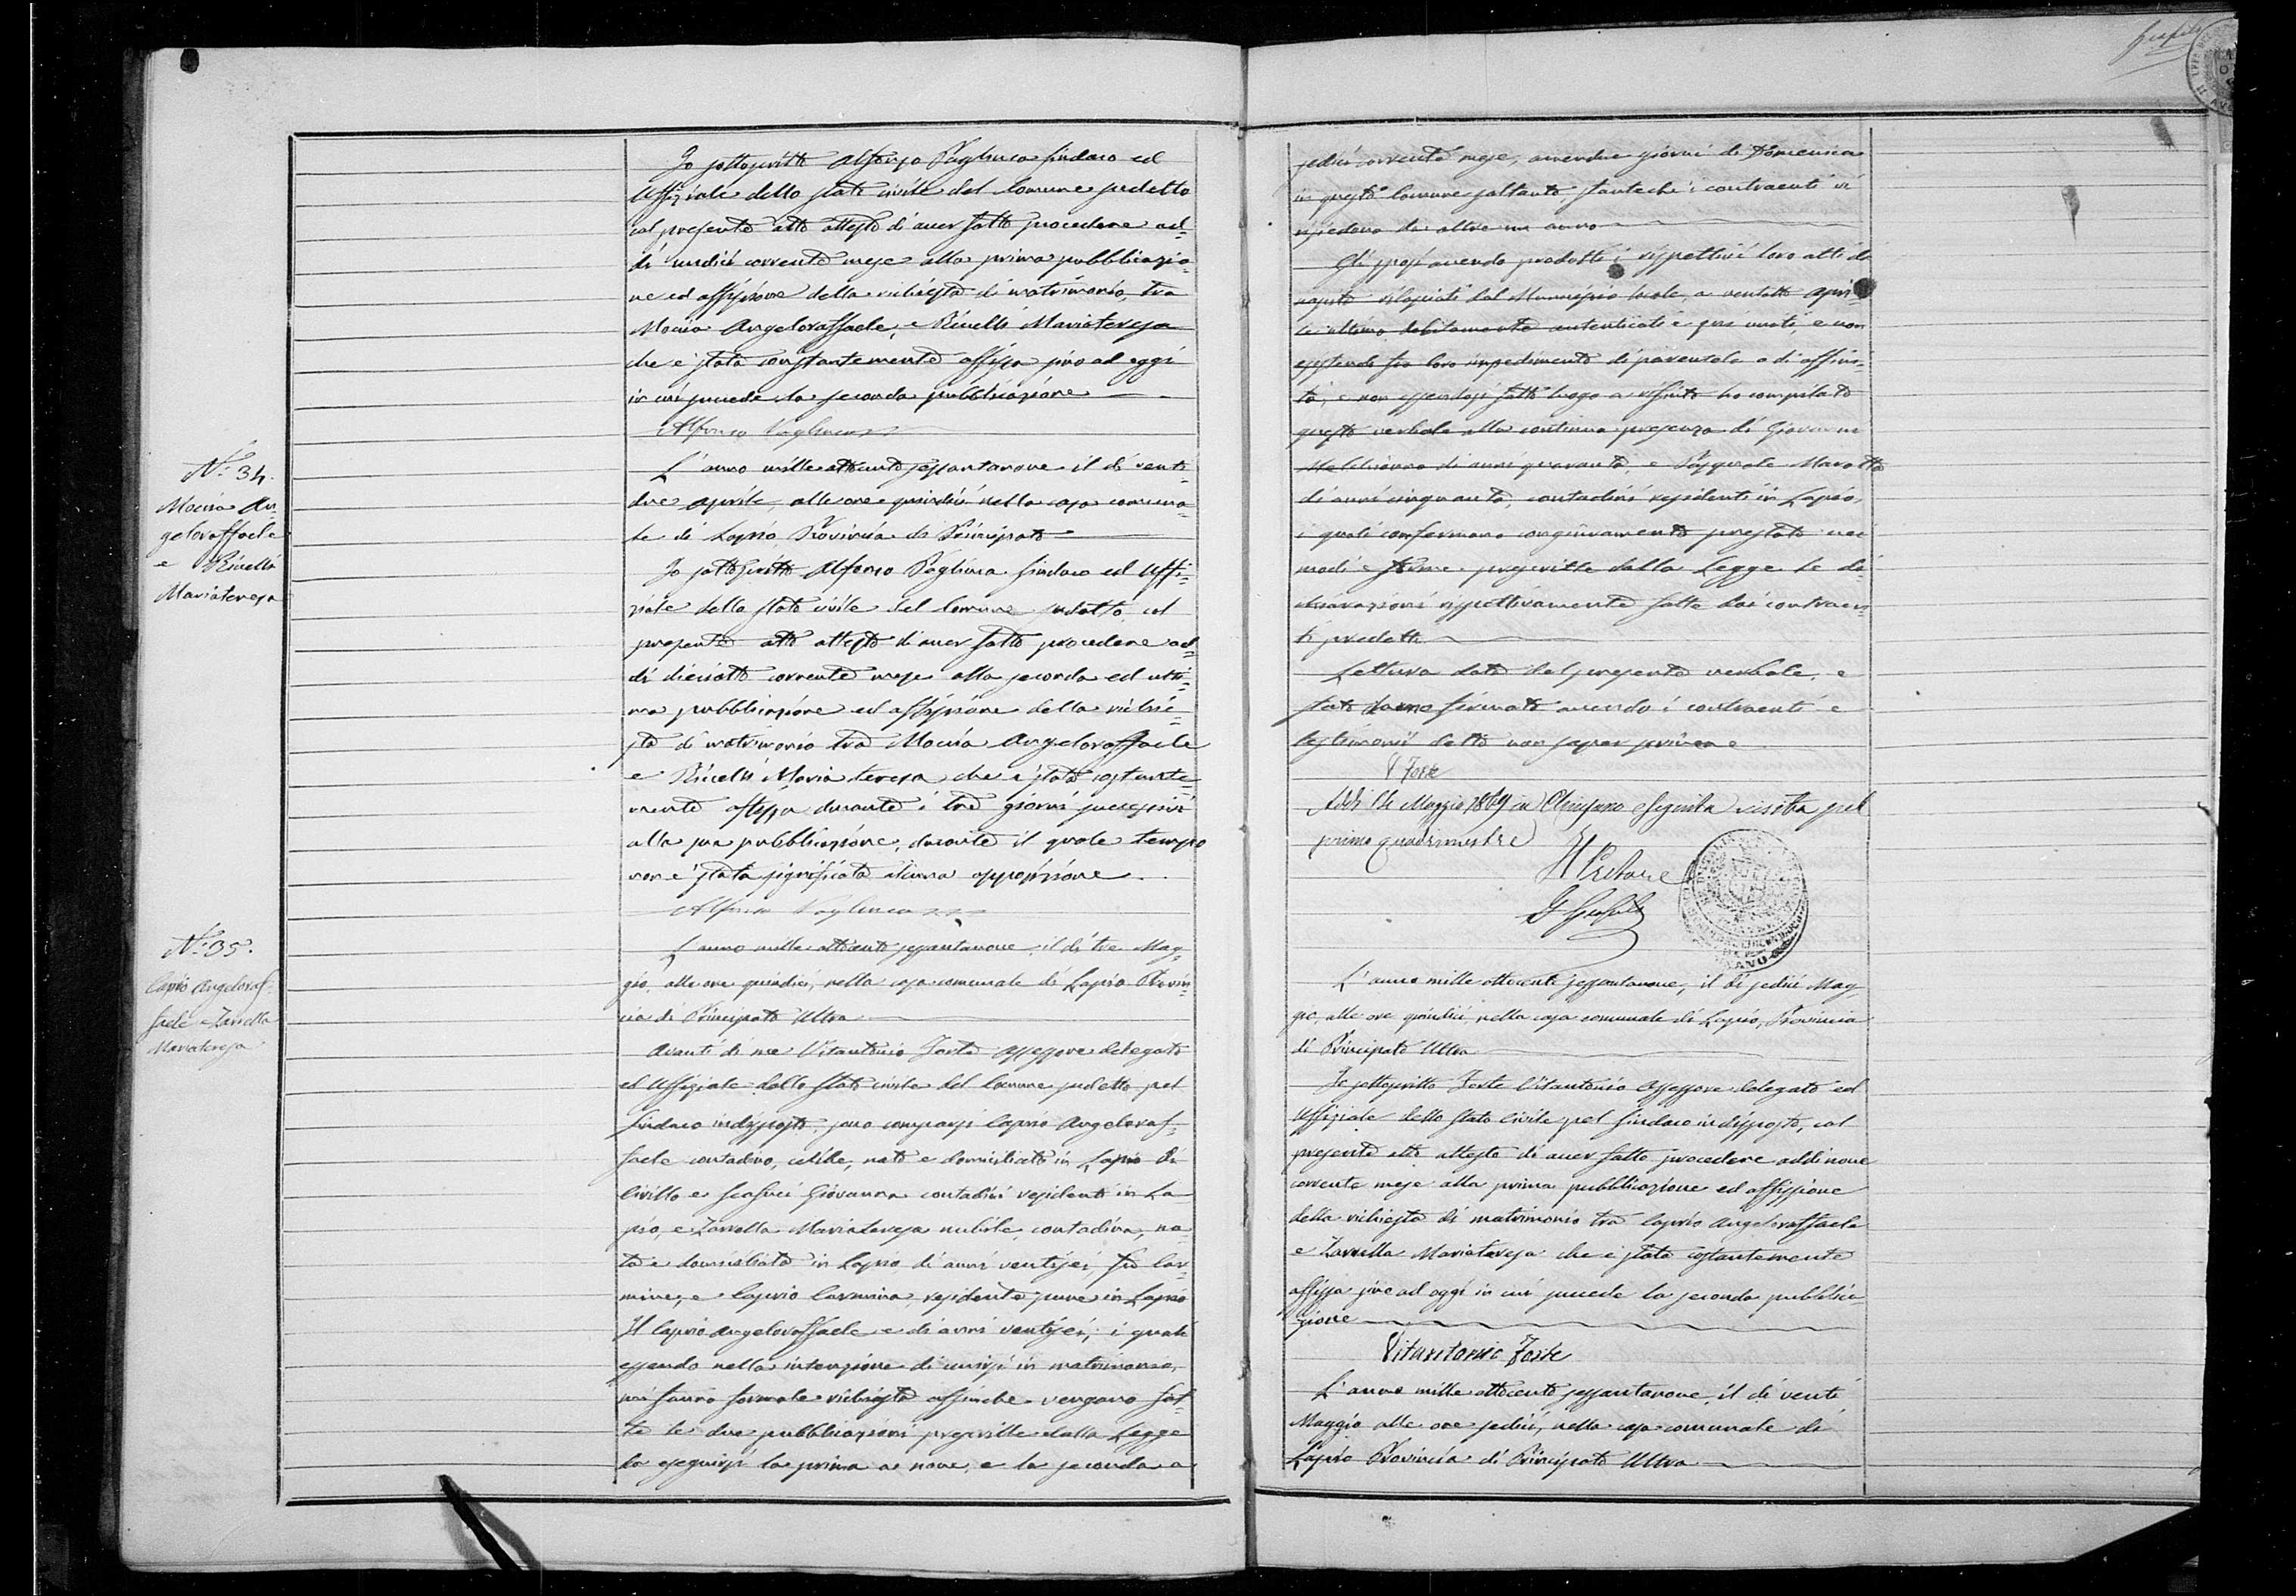 Io sottoscritto Alfonso Pagliuca Sindaco ed
Uffiziale dello stato civile del Comune sudetto
col presente atto attesto d'aver fatto procedere ad-
dì undici corrente mese alla prima pubblicazio-
ne ed affissione della richiesta di matrimonio, tra
Mocia Angeloraffaele, e Ricelli Mariateresa
che è stata constantemente affissa sino ad oggi
in cui succede la seconda pubblicazione
Alfonso Pagliuca
N.º 34.
Mocia An-
geloraffaele
e Ricelli
Mariateresa
L'anno mille ottocento sessantanove il dì venti
due Aprile, alle ore quindici nella casa comuna-
le di Lapio Provincia di Principato
Io sottoscritto Alfonso Pagliuca Sindaco ed Uffi-
ziale dello stato civile del Comune sudetto, col
presente atto attesto di aver fatto procedere ad-
dì dieciotto corrente mese alla seconda ed ulti-
ma pubblicazione ed affissione della richie-
sta di matrimonio tra Mocia Angeloraffaele
e Ricelli Maria teresa che è stata costante-
mente affissa durante i tre giorni successivi
alla sua pubblicazione, durante il quale tempo
non è stata significata alcuna opposizione.
Alfonso Pagliuca
N.º 35.
Caprio Angeloraf-
faele e Zarrella
Mariateresa
L'anno mille ottocento sessantanove il dì tre Mag-
gio, alle ore quindici, nella casa comunale di Lapio Provin-
cia di Principato Ultra
Avanti di me Vitantonio Forte Assessore delegato
ed Uffiziale dello stato civile del Comune sudetto pel
Sindaco indisposto, sono comparsi Caprio Angeloraf-
faele contadino, celibe, nato e domiciliato in Lapio di
Cirillo e Giovanna contadini residenti in La-
pio, e Zarrella Mariateresa nubile, contadina, na-
ta e domiciliata in Lapio di anni ventisei, fu Car-
mine, e Caprio Carmina, residente pure in Lapio
Il Caprio Angeloraffaele e di anni ventisei; i quali
essendo nella intenzione di unirsi in matrimonio,
mi fanno formale richiesta affinché vengano fat-
te le due pubblicazioni prescritte dalla Legge
da eseguirsi la prima a nove, e la seconda a
sedici corrente mese, amendue giorni di Domenica
in questo Comune soltanto, stanteche i contraenti vi
risiedono da oltre un anno
Gli sposi avendo prodotti i rispettivi loro atti di
nascita rilasciati dal Municipio locale, a ventotto Apri-
le ultimo debitamente autenticati e quì uniti, e non
esistendo fra loro impedimento di parentela o di affini-
tà, e non essendosi fatto luogo a rifiuto ho compilato
questo verbale alla continua presenza di Giovanni
Melchionno di anni quaranta, e Pasquale Marotta
di anni cinquanta, contadini residenti in Lapio,
i quali confermano con giuramento prestato nei
modi e forme prescritte dalla Legge le di-
chiarazioni rispettivamente fatte dai contraen-
ti predetti
Lettura data del presente verbale, e
stato da me firmato avendo i contraenti e
testimonii detto non saper scrivere
V Forte
Addi 14 Maggio 1869 in Chiusano eseguita visita pel
primo quadrimestre
Il Pretore
L'anno mille ottocento sessantanove, il dì sedici Mag-
gio, alle ore quindici, nella casa comunale di Lapio, Provincia
di Principato Ultra
Io sottoscritto Forte Vitantonio Assessore delegato ed
Uffiziale dello stato civile pel Sindaco indisposto, col
presente atto attesto di aver fatto procedere addi nove
corrente mese alla prima pubblicazione ed affissione
della richiesta di matrimonio tra Caprio Angeloraffaele
e Zarrella Mariateresa che è stata costantemente
affissa sino ad oggi in cui succede la seconda pubblica-
zione
Vitantonio Forte
L'anno mille ottocento sessantanove, il dì venti
Maggio alle ore sedici, nella casa comunale di
Lapio Provincia di Principato Ultra